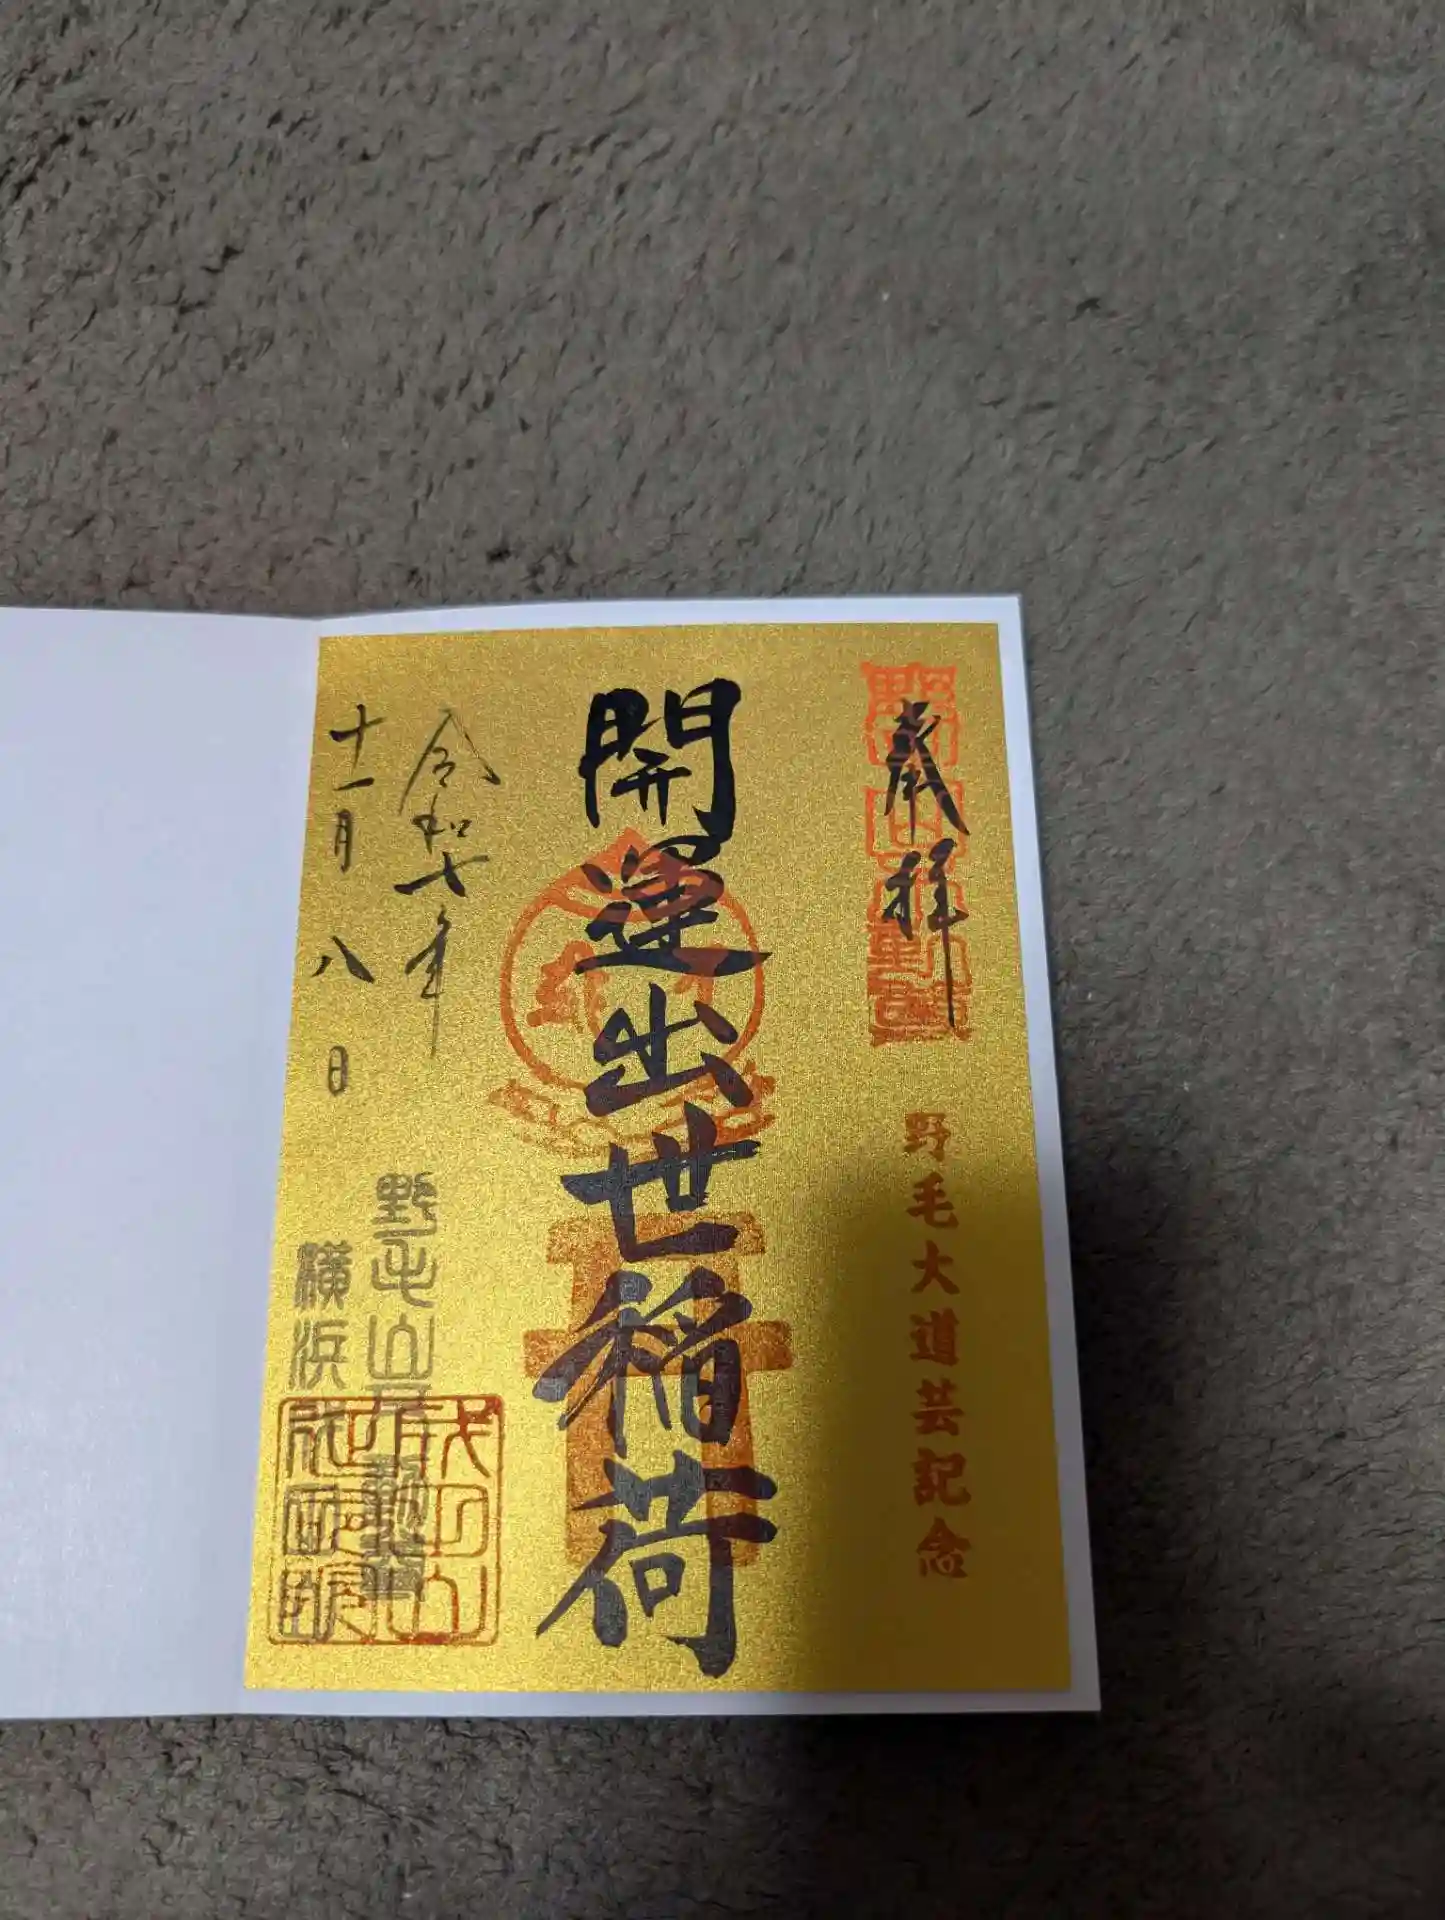 奉拝
野毛大道芸記念
開運出世稲荷
令和七年
十一月八日
野毛山不動尊
横浜
成田山